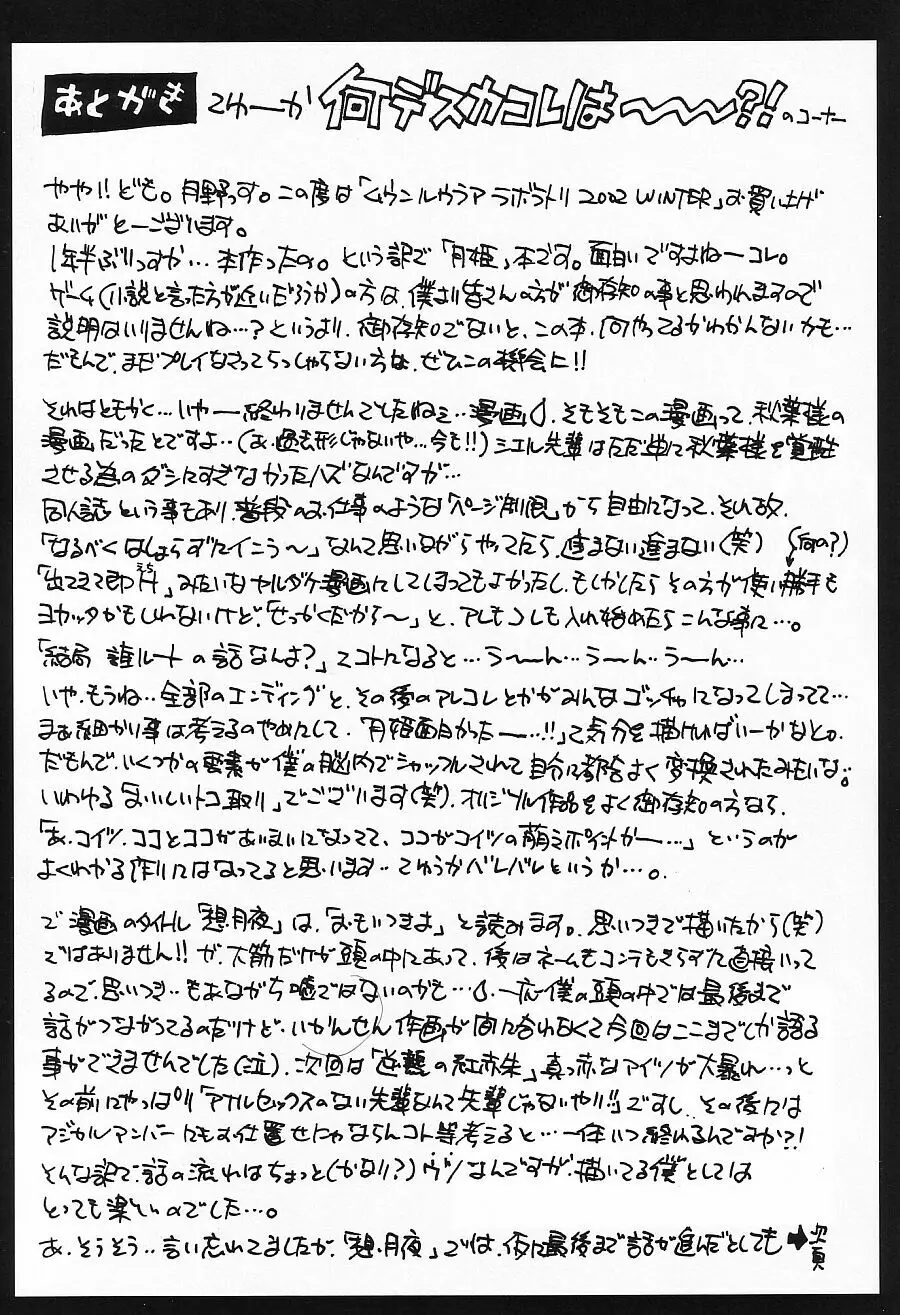 あとがき てゆーか 何デスカコレは〜〜〜?! のコーナー
やや!! ども。月野っす。この度は「ムウンルウラア ラボラトリ 2002 WINTER」お買い上げ
ありがとーございます。
1年半ぶりっすか…本作ったの。という訳で「月姫」本です。面白いですよねーコレ。
ゲーム(小説と言った方が近いだろうか)の方は、僕より皆さんの方が御存知の事と思われますので
説明はいりませんね…?というより、御存知でないと、この本、何やってるかわかんないかも…
だもんで、まだプレイなさってらっしゃらない方は、ぜひこの機会に!!
それはともかく…いやー終わりませんでしたねェ…漫画。そもそもこの漫画って、秋葉様の
漫画だったとですよ…(あ、過去形じゃないや…今も!!)シエル先輩はただ単に秋葉様を覚醒
させる為のダシにすぎなかったハズなんですが…
同人誌という事もあり、普段のお仕事のような「ページ制限」から自由になって、それ故、
「なるべくはしょらずにイこう〜」なんて思いながらやってたら、進まない進まない(笑) (何の?)
「出てきて即H」みたいなヤルダケ漫画にしてしまってもよかったし、もしかしたらその方が使い勝手も
ヨカッタかもしれないけど、「せっかくだから〜」と、アレもコレも入れ始めたらこんな事に…。
「結局 誰ルートの話なんよ?」てコトになると…う〜ん…う〜ん…う〜ん…
いや、もうね…全部のエンディングと、その後のアレコレとかがみんなゴッチャになってしまってて…
まぁ細かい事は考えるのやめにして、「月姫面白かったー…!!」って気分を描ければいーかなと。
だもんで、いくつかの要素が僕の脳内でシャッフルされて自分に都合よく変換されたみたいな。
いわゆる「おいしいトコ取り」でございます(笑)。オリジナル作品をよく御存知の方なら、
「あ、コイツ、ココとココがあいまいになってて、ココがコイツの萌えポイントかー…」というのが
よくわかる作りにはなってると思います…てゆうかバレバレというか…。
で 漫画のタイトル「想月夜」は、「おもいつきよ」と読みます。思いつきで描いたから(笑)
ではありません!! が、大筋だけが頭の中にあって、後はネームもコンテもきらずに直接いって
るので、思いつき…もあながち嘘ではないのかも…。一応僕の頭の中では最後まで
話がつながってるのだけど、いかんせん作画が間に合わなくて今回はここまでしか語る
事ができませんでした(泣)。次回は「逆襲の紅赤朱」真っ赤なアイツが大暴れ…っと
その前にやっぱり「アナルセックスのない先輩なんて先輩じゃないやい!!」ですし、その後には
マジカルアンバーにもお仕置せにゃならんコト等考えると…一体いつ終わるんですか?!
そんな訳で、話の流れはちょっと(かなり?)ウソなんですが、描いてる僕としては
とっても楽しいのでした…。
あ、そうそう…言い忘れてましたが、「想月夜」では、仮に最後まで話が進んだとしても ➡次頁